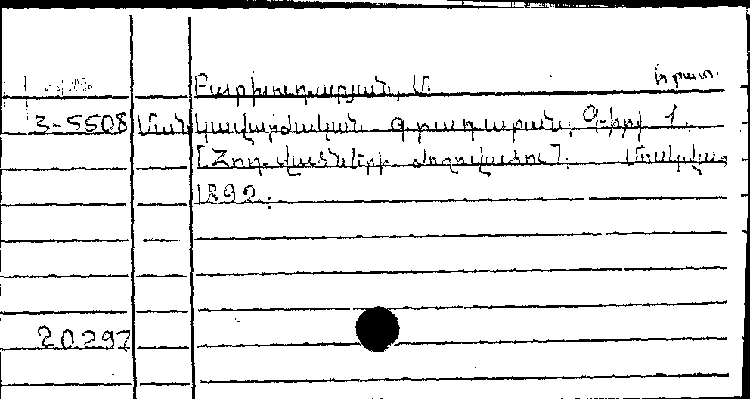 Բարխուդարյան, Մ. խըրատ.
3-5508 Մանկավարժական գրադարան. Գիրք 1.
[Հոդվածների ժողովածու]. Մոսկվա
1892.
20.297